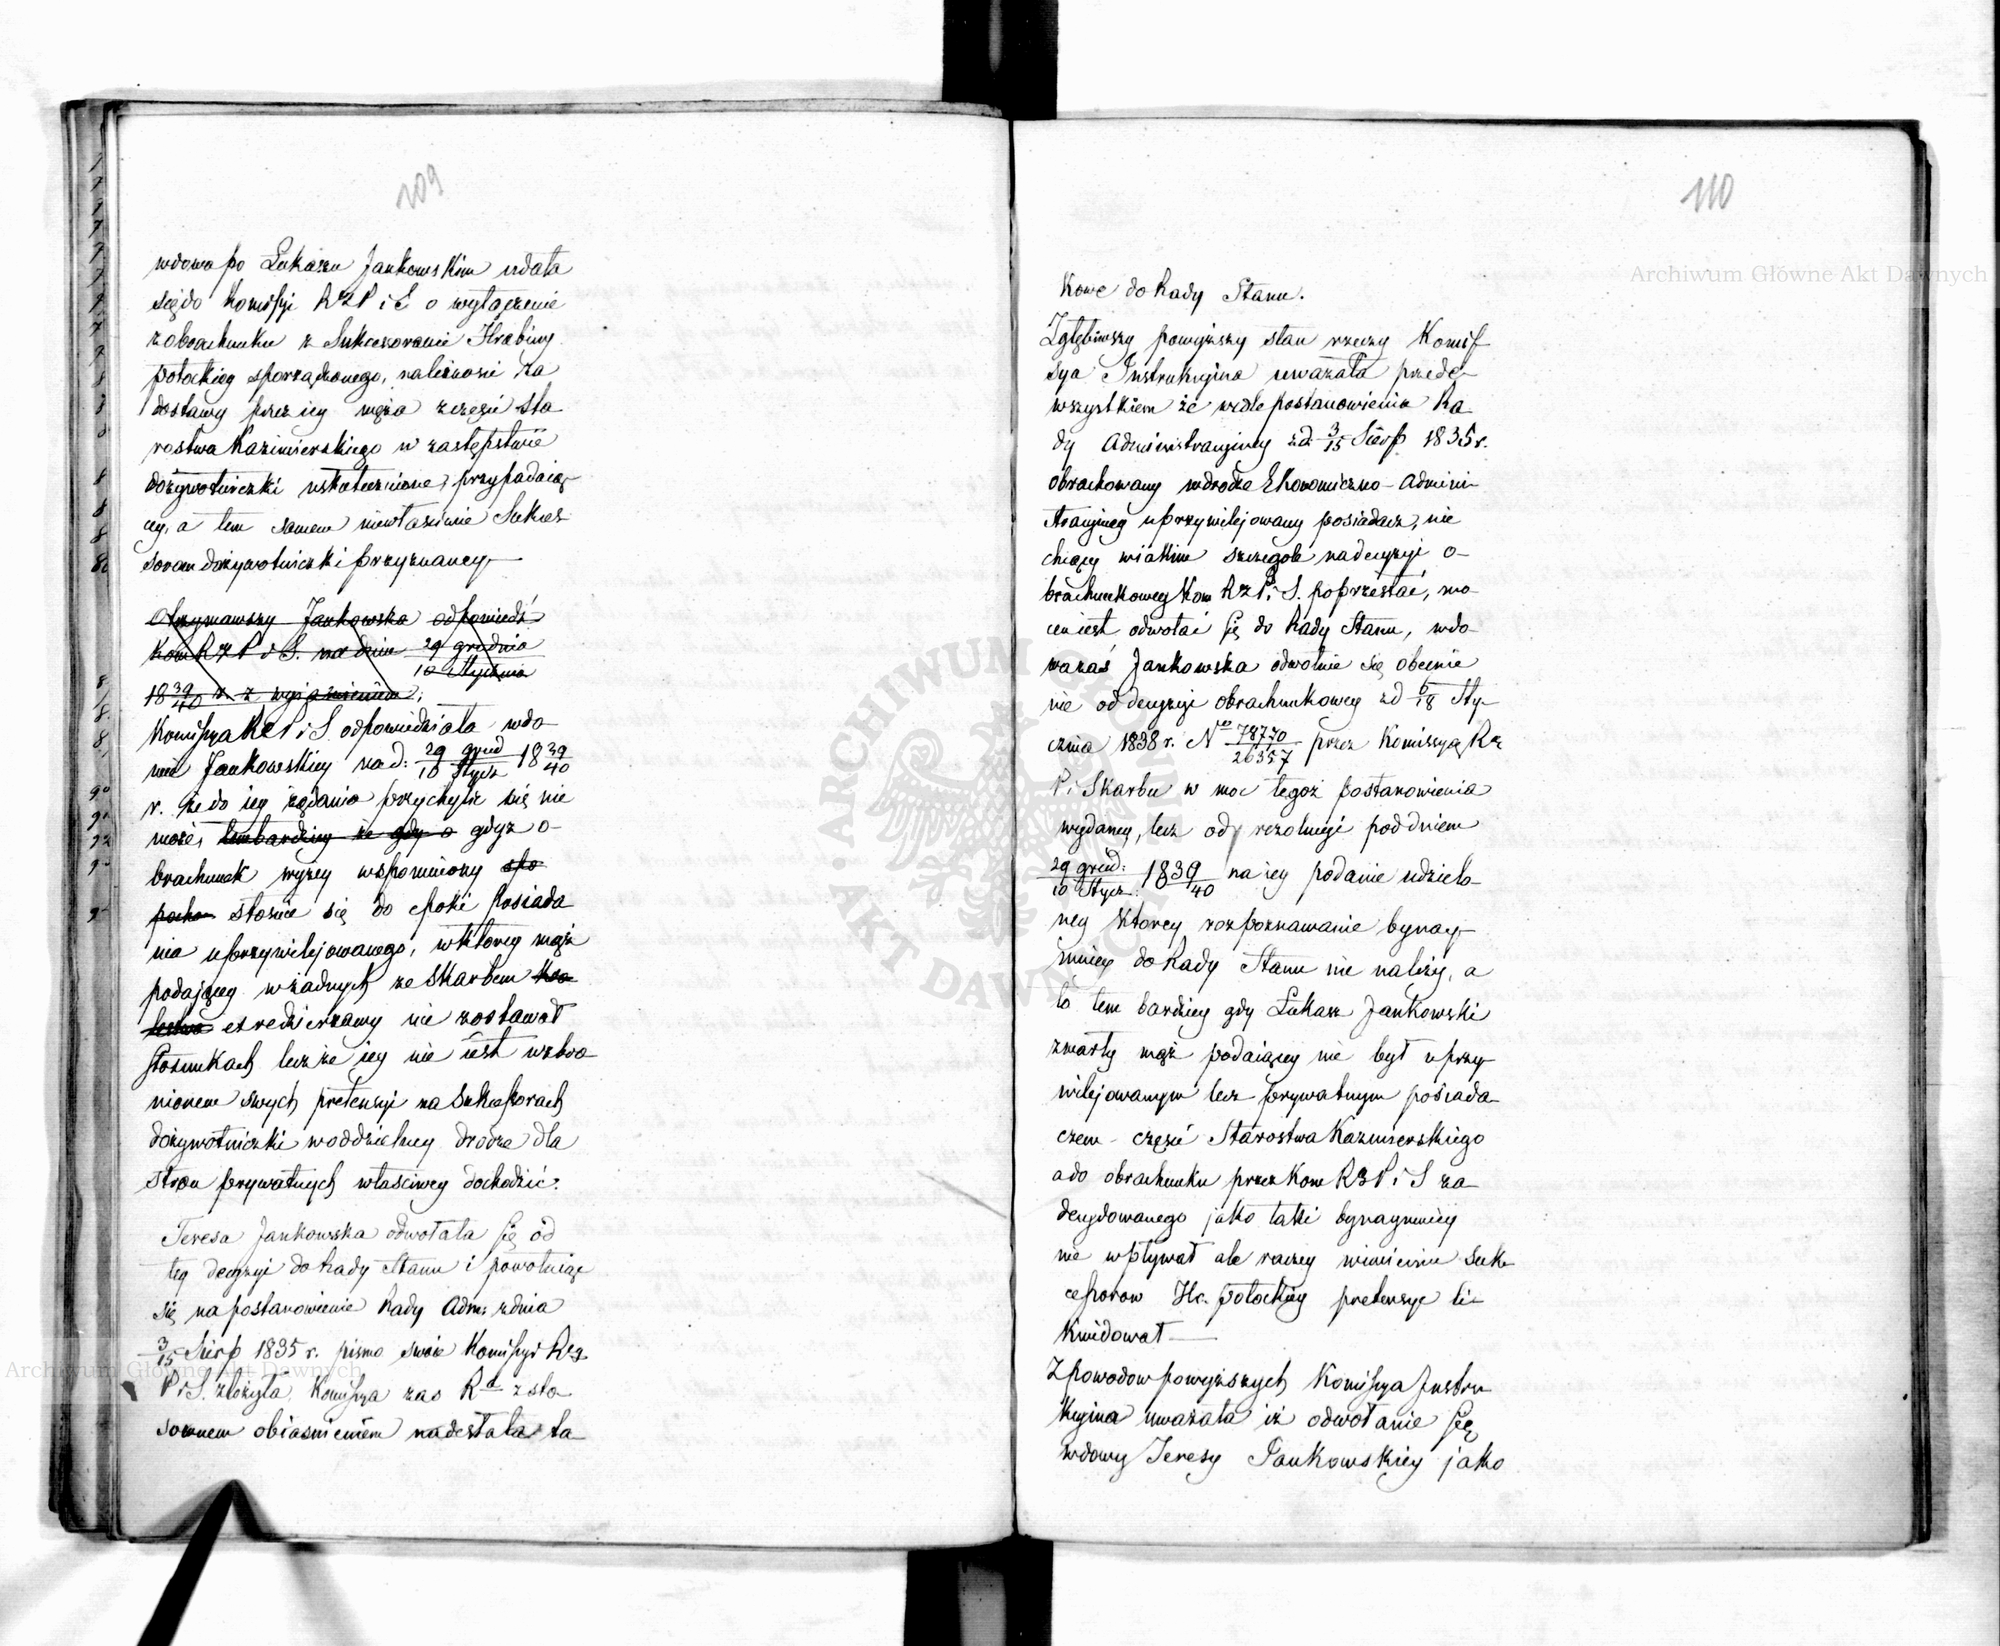 109
wdowa po Łukaszu Jankowskim udała
się do Komissyi RzP i S o wyłączenie
z obrachunku z Sukcesorami Hrabiny
Potockiey sporządzonego, należności za
dostawy przez iey męża z części sta
rostwa Kazimierskiego w zastępstwie
dożywotniczki uskutecznione, przypadaią
cey, a tem samem niewłaściwie Sukces
sorom dożywotniczki przyznaney.
Otrzymawszy Jankowska odpowiedź
Kom RzP i S. na dniu 29 grudnia
10 Stycznia
18 39/40 r. z wyiaśnieniem,
Komissya RzP i S. odpowiedziała wdo
wie Jankowskiey na d: 29 grud/10 Stycz 18 39/40
r. że do iey żądania przychylić się nie
może, tembardziey że gdy o gdyż o-
brachunek wyżey wspomniony spo
stosuie się do epoki posiada
nia uprzywilejowanego, w którey mąż
podającey w żadnych ze Skarbem
extredzierżawy nie zostawał
stosunkach lecz że iey nie iest wzbro
nionem swych pretensyi na Sukcessorach
dożywotniczki w oddzielney drodze dla
stron prywatnych właściwey dochodzić.
Teresa Jankowska odwołała się od
tey decyzyi do Rady Stanu i powołuiąc
się na postanowienie Rady Adm: z dnia
3/15 Sierp 1835 r. pismo swoie Komissyi Rzą
P i S. złożyła. Komissya zaś Rd z sto
sownem obiaśnieniem nadesłała ta
110
Kowe do Rady Stanu.
Zgłębiwszy powyższy stan rzeczy Komis
sya Instrukcyina uważała przede
wszystkiem że wedle postanowienia Ra
dy Administracyiney z d. 3/15 Sierp 1835 r.
obrachowany w drodze Ekonomiczno-Admini
stracyiney uprzywilejowany posiadacz, nie
chcący w iakim szczególe na decyzyi o-
brachunkowey Kom RzP i S. poprzestać, mo
cen iest odwołać się do Rady Stanu, wdo
wa zaś Jankowska odwołuie się obecnie
nie od decyzyi obrachunkowey z d 6/18 Sty-
cznia 1838 r. No 78770/26357 przez Komissyą Rz
P i Skarbu w moc tegoż postanowienia
wydaney, lecz od rezolucyi pod dniem
29 grud:/10 Stycz: 1839/40 na iey podanie udzielo-
ney którey rozpoznawanie bynay-
mniey do Rady Stanu nie należy, a
to tem bardziey gdy Łukasz Jankowski
zmarły mąż podaiącey nie był uprzy-
wilejowanym lecz prywatnym posiada-
czem części Starostwa Kazimierskiego
a do obrachunku przez Kom RzP i S za
decydowanego jako taki bynaymniey
nie wpływał ale raczey w imieniu Suk
cessorow Hr. Potockiey pretensye li-
kwidował
Z powodow powyższych Komissya Instru
kcyina uważała iż odwołanie się
wdowy Teresy Jankowskiey jako
Archiwum Główne Akt Dawnych
Archiwum Główne Akt Dawnych
ARCHIWUM GŁÓWNE AKT DAWNYCH